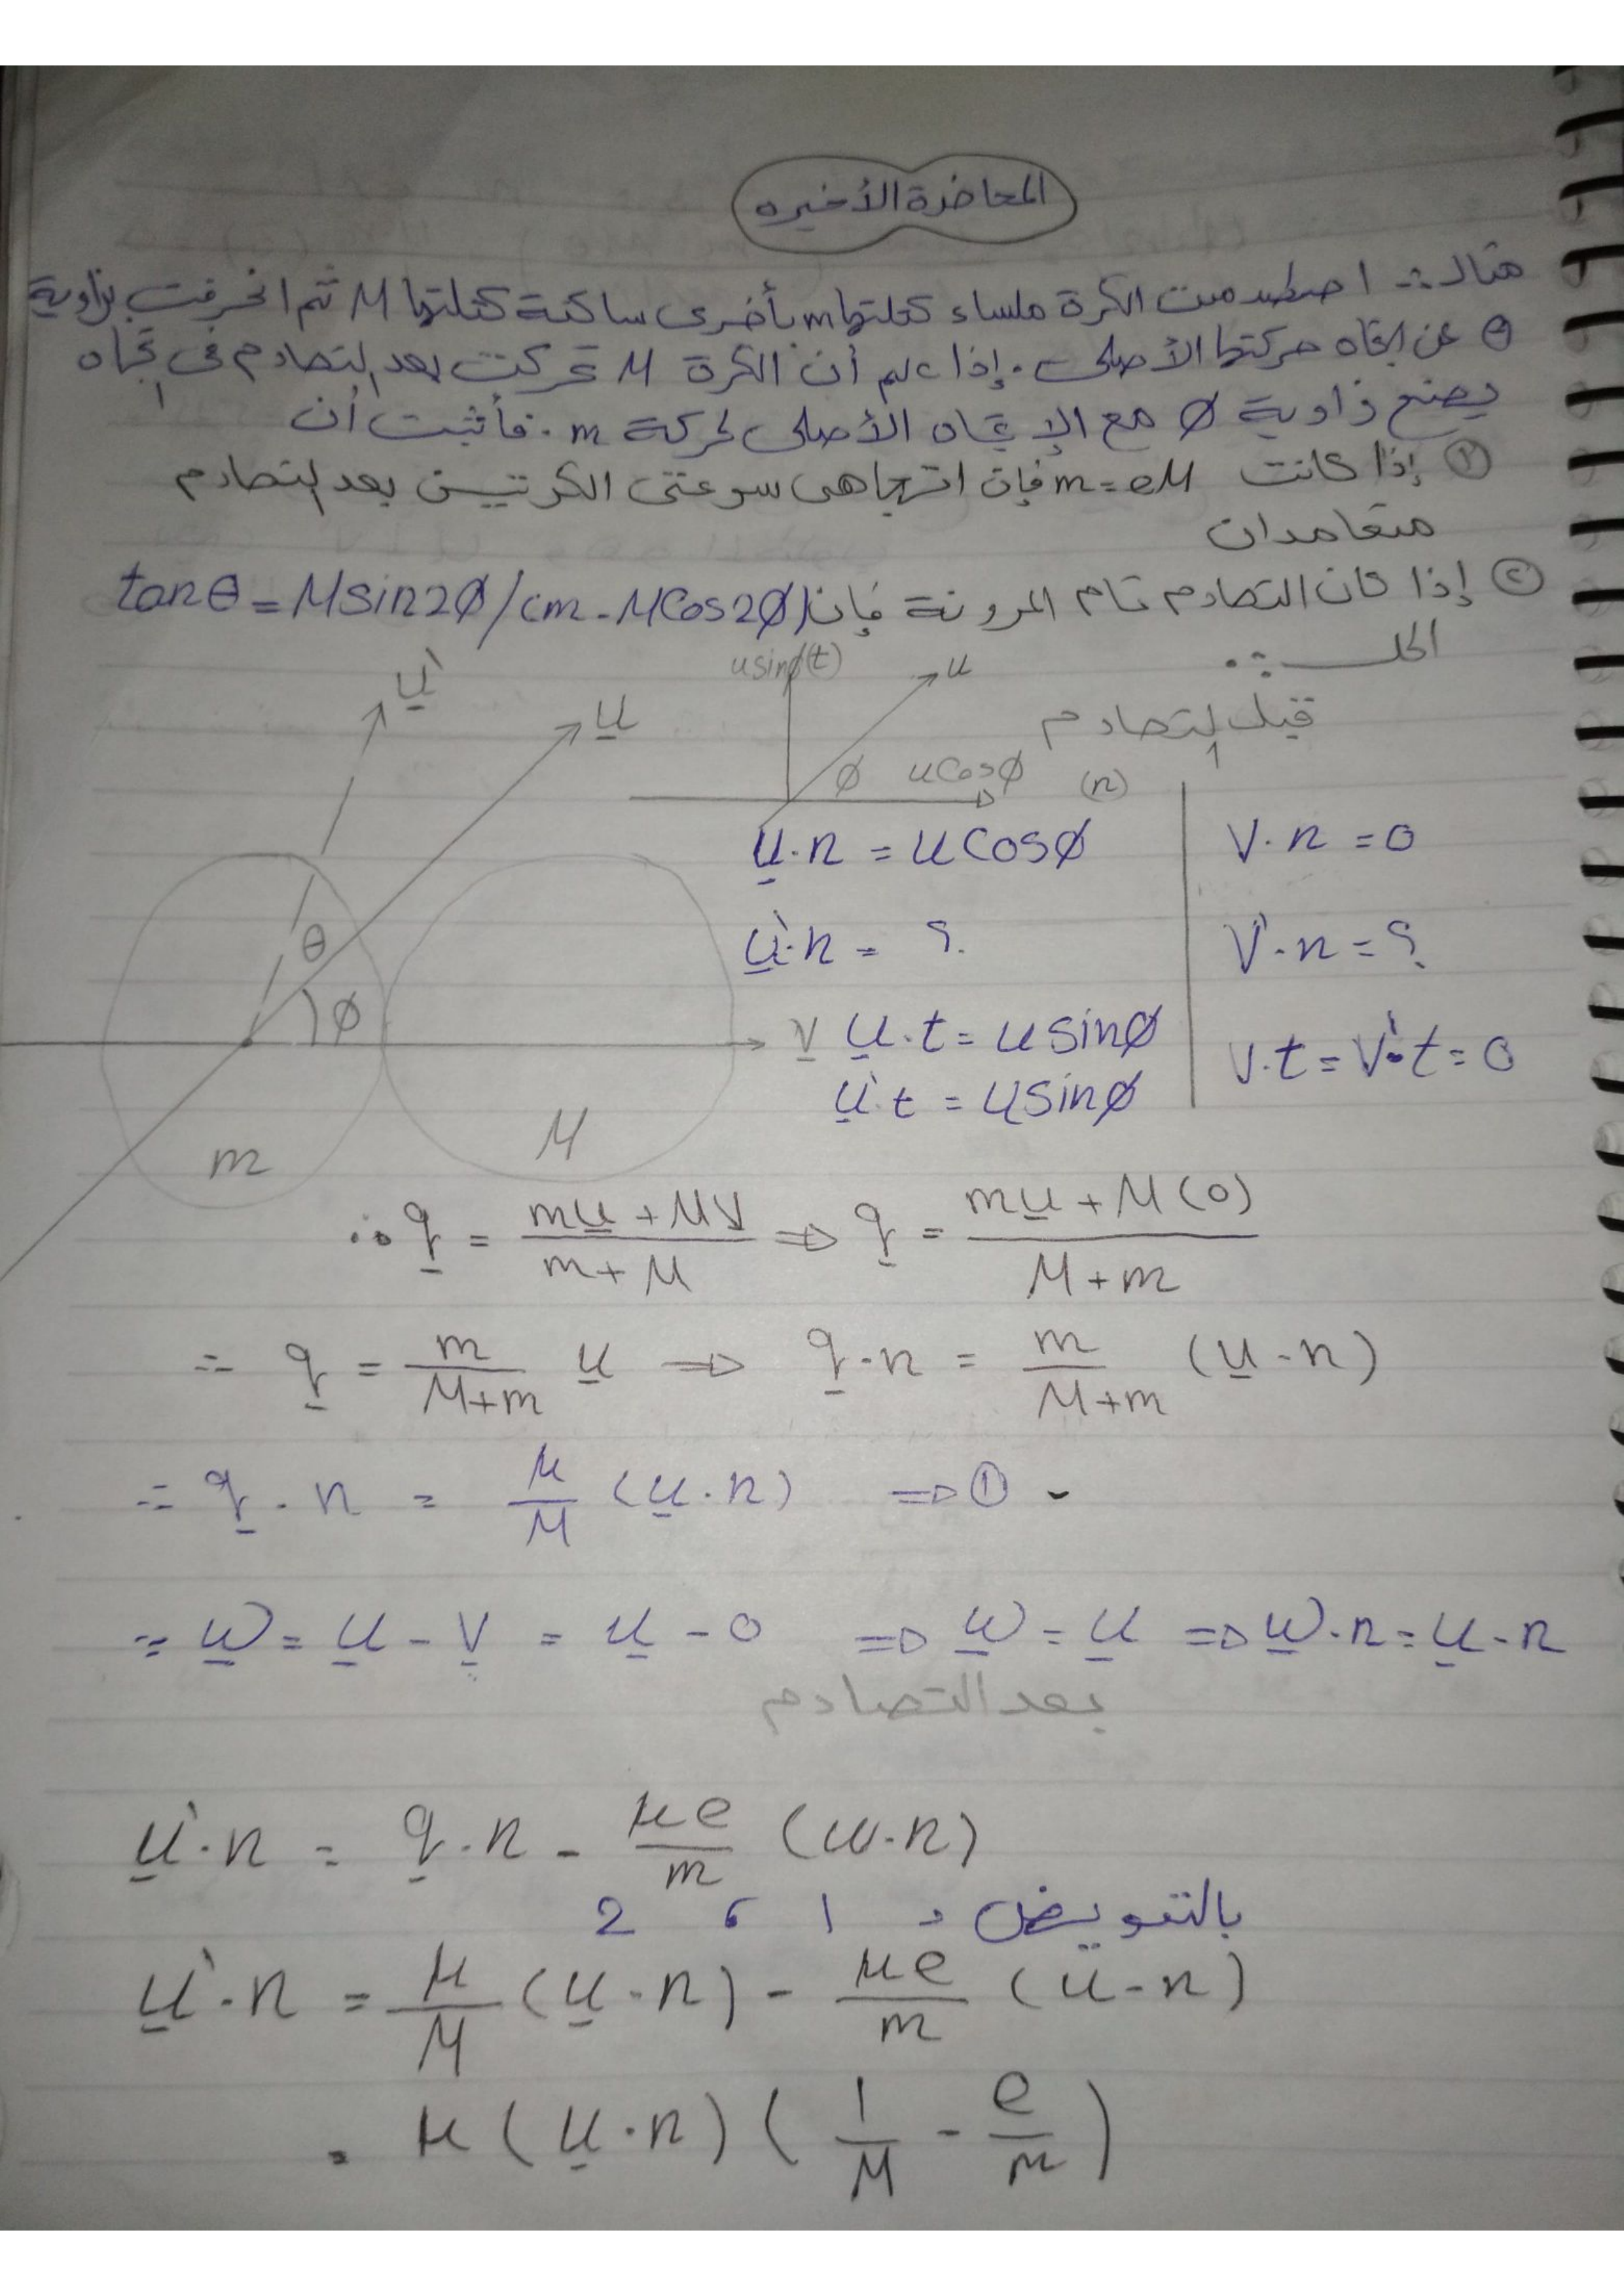 المحاضرة الأخيره
مثال :- اصطدمت الكرة ملساء كتلتها m بأخرى ساكنة كتلتها M ثم انحرفت بزاوية
θ عن اتجاه حركتها الأصلى . إذا علم أن الكرة M تحركت بعد التصادم فى اتجاه
يصنع زاوية ϕ مع الإتجاه الأصلى لحركة m . فأثبت أن
① إذا كانت m = eM فإن اتجاهى سرعتى الكرتيين بعد التصادم
متعامدان
② إذا كان التصادم تام المرونة فإن tanθ = Msin2ϕ/(m - MCos2ϕ)
الحل :-
قبل التصادم
u̲'
u̲
usinϕ(t)
u
ϕ uCosϕ (n)
θ
ϕ
v̲
m
M
u̲·n = uCosϕ
V·n = 0
u̲'·n = ؟
V'·n = ؟
u̲·t = usinϕ
u̲'·t = usinϕ
V·t = V'·t = 0
∴ q̲ = (mu̲ + Mv̲)/(m + M) ⇒ q̲ = (mu̲ + M(0))/(M + m)
∴ q̲ = m/(M+m) u̲ ⇒ q̲·n = m/(M+m) (u̲·n)
∴ q̲·n = μ/M (u̲·n) ⇒ ①
∴ w̲ = u̲ - v̲ = u̲ - 0 ⇒ w̲ = u̲ ⇒ w̲·n = u̲·n
بعد التصادم
u̲'·n = q̲·n - μe/m (w·n)
بالتعويض 1 ، 2
u̲'·n = μ/M (u̲·n) - μe/m (u·n)
= μ(u̲·n)(1/M - e/m)